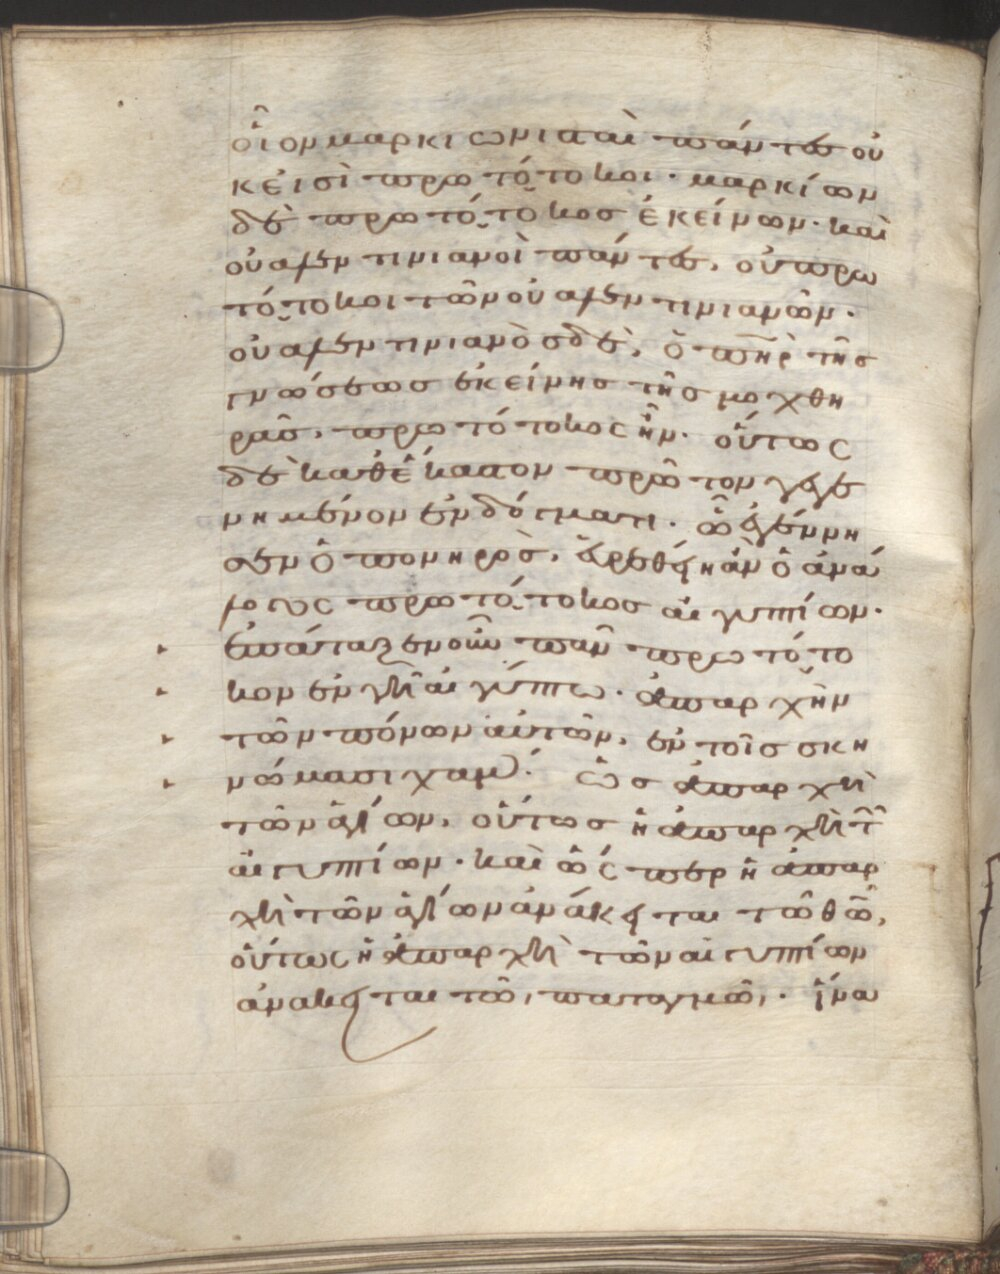 οἷον μαρκιωνισταὶ πάντες οὐ
κ εἰσὶ πρωτότοκοι· μαρκίων
δὲ πρωτότοκος ἐκείνων· καὶ
οὐαλεντινιανοὶ πάντες, οὐ πρω
τότοκοι τῶν οὐαλεντινιανῶν·
οὐαλεντινιανὸς δὲ, ὁ πηρ τῆς
γνώσεως ἐκείνης τῆς μοχθη
ρᾶς, πρωτότοκος ἦν· οὕτως
δὲ καθ' ἕκαστον πρῶτον γεγε
νημένον ἐν δόγματι· ὃ ἐγέννη
σεν ὁ πονηρὸς, εὑρεθείη ἂν ὁ ἀνά
λογος πρωτότοκος αἰγυπτίων·
ἐπάταξεν οὖν πᾶν πρωτότο
κον ἐν γῆ αἰγύπτω· ἀπαρχὴν
τῶν πόνων αὐτῶν, ἐν τοῖς σκη
νώμασι χάμ· ὡς ἀπαρχὴ
τῶν ἁγίων, οὕτως ἡ ἀπαρχὴ τ
αἰγυπτίων· καὶ ὥσπερ ἡ ἀπαρ
χὴ τῶν ἁγίων ἀνάκειται τῶ θω,
οὕτως ἡ ἀπαρχὴ τῶν αἰγυπτίων
ἀνακειται τῶ, παταγμῶ,· ἵνα